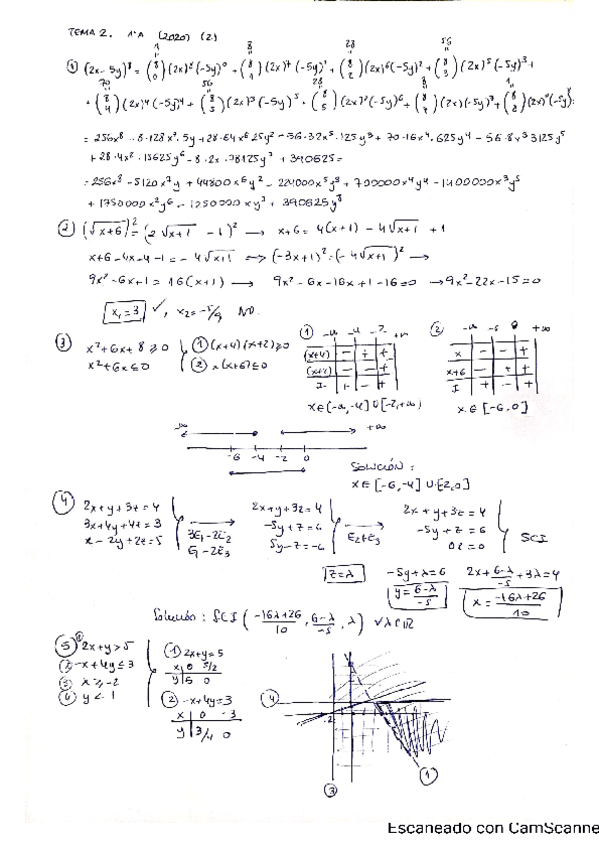 TEMA 2. 1ºA (2020) (2)
1 8 28 56
① (2x-5y)⁸ = (8 0)(2x)⁸(-5y)⁰ + (8 1)(2x)⁷(-5y)¹ + (8 2)(2x)⁶(-5y)² + (8 3)(2x)⁵(-5y)³ +
70 56 28 8 1
+ (8 4)(2x)⁴(-5y)⁴ + (8 5)(2x)³(-5y)⁵ + (8 5)(2x)²(-5y)⁶ + (8 7)(2x)(-5y)⁷ + (8 8)(2x)⁰(-5y)⁸
= 256x⁸ - 8·128x⁷·5y + 28·64x⁶25y² - 56·32x⁵·125y³ + 70·16x⁴·625y⁴ - 56·8x³3125y⁵
+ 28·4x²·15625y⁶ - 8·2x·78125y⁷ + 390625 =
= 256x⁸ - 5120x⁷y + 44800x⁶y² - 224000x⁵y³ + 700000x⁴y⁴ - 1400000x³y⁵
+ 1750000x²y⁶ - 1250000xy⁷ + 390625y⁸
② (√x+6)² = (2√x+1 - 1)² → x+6 = 4(x+1) - 4√x+1 + 1
x+6-4x-4-1 = -4√x+1 → (-3x+1)² = (-4√x+1)² →
9x²-6x+1 = 16(x+1) → 9x²-6x-16x+1-16=0 → 9x²-22x-15=0
x₁=3 ✓, x₂=-5/9 NO.
③ x²+6x+8 ≥ 0 ① (x+4)(x+2) ≥ 0
x²+6x ≤ 0 ② x(x+6) ≤ 0
① -∞ -4 -2 +∞
(x+4) - + +
(x+2) - - +
I + - +
x∈(-∞,-4]∪[-2,+∞)
② -∞ -6 0 +∞
x - - +
x+6 - + +
I + - +
x∈[-6,0]
-∞ +∞
-6 -4 -2 0
SOLUCIÓN:
x∈[-6,-4]∪[-2,0]
④ 2x+y+3z=4 2x+y+3z=4 2x+y+3z=4
3x+4y+4z=3 3E₁-2E₂ -5y+z=6 E₂+E₃ -5y+z=6 SCI
x-2y+z=5 E₁-2E₃ 5y-z=-6 0z=0
z=λ -5y+λ=6 2x+6-λ/-5+3λ=4
y=6-λ/-5 x=-16λ+26/10
Solución: SCI (-16λ+26/10, 6-λ/-5, λ) ∀λ∈ℝ
⑤ ① 2x+y>5 ① 2x+y=5
② -x+4y≤3 x 0 5/2
③ x≥-2 y 5 0
④ y<1 ② -x+4y=3
x 0 -3
y 3/4 0
④
-2
①
③
Escaneado con CamScanne